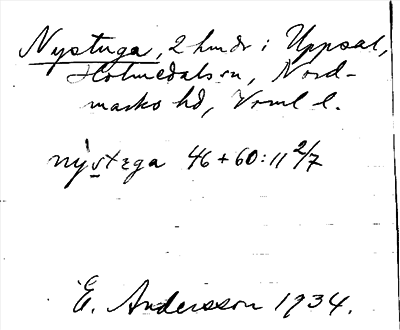 Nystuga, 2 hmdr i Uppsal,
Holmedals sn, Nord-
marks hd, Vrml l.
nỳstega 46+60:11 2/7
E. Andersson 1934.